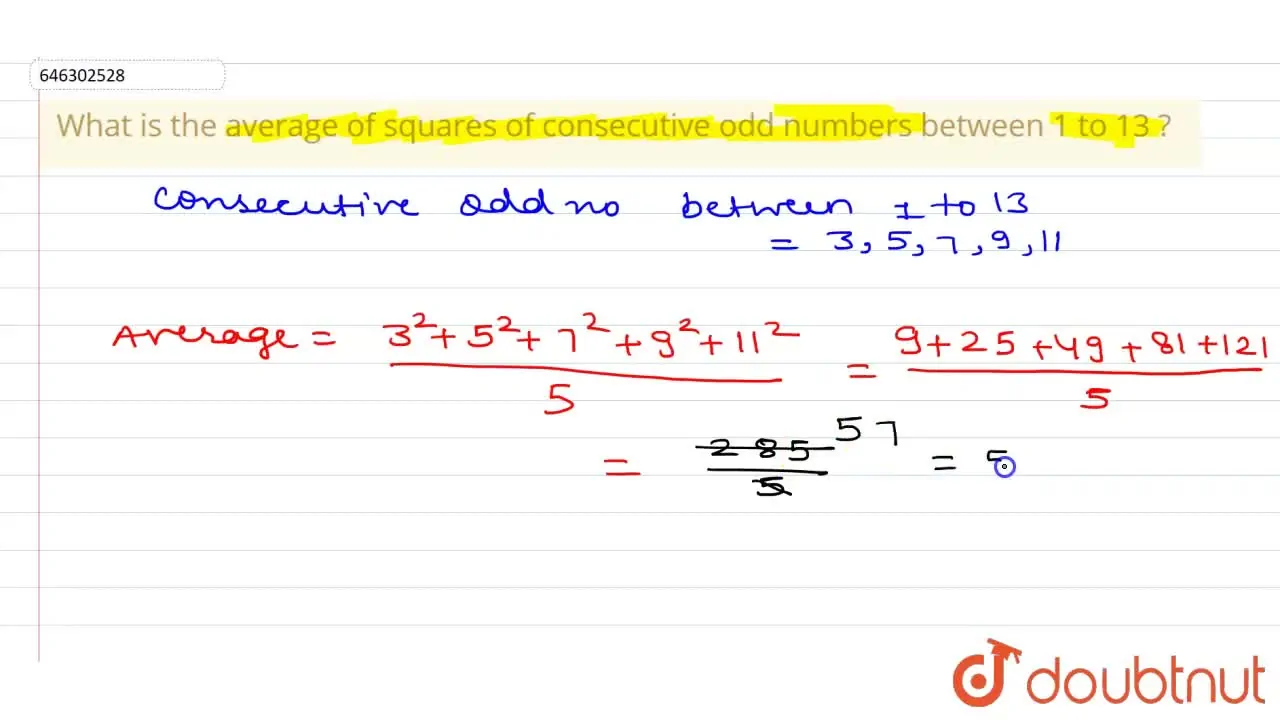 646302528
What is the average of squares of consecutive odd numbers between 1 to 13 ?
consecutive odd no between 1 to 13
= 3, 5, 7, 9, 11
Average = 3² + 5² + 7² + 9² + 11² / 5 = 9 + 25 + 49 + 81 + 121 / 5
= 285 / 5 57 = 5
doubtnut